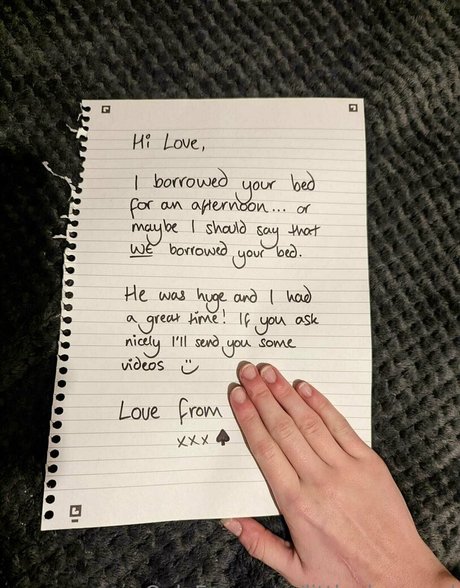 Hi Love,
I borrowed your bed
for an afternoon... or
maybe I should say that
WE borrowed your bed.
He was huge and I had
a great time! If you ask
nicely I'll send you some
videos :)
Love from
xxx ♠